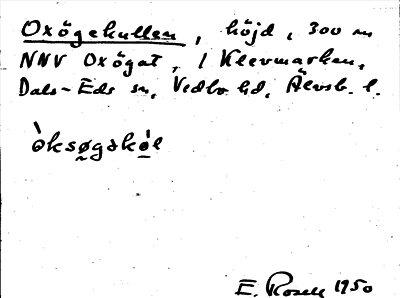 Oxögekullen, höjd, 300 m
NNV Oxögat, i Klevmarken,
Dals-Eds sn, Vedbo hd, Älvsb. l.
òksøgəkòl
E. Rosell 1950